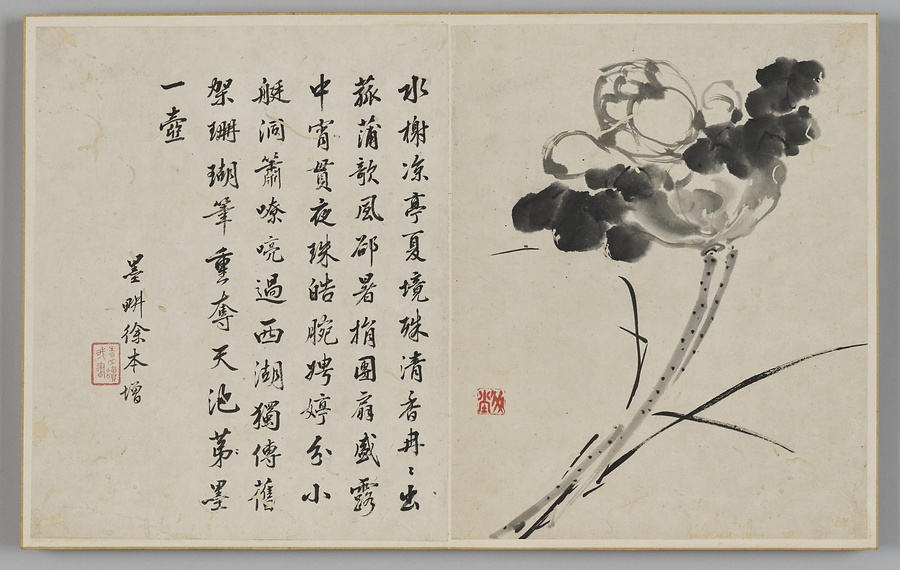 水榭凉亭夏境殊清香冉〻出
菰蒲歌風郤暑捐團扇盛露
中宵貫夜珠皓腕娉婷分小
艇洞簫嘹喨過西湖獨傳舊
架珊瑚筆重奪天池第墨
一壺
墨畊徐本增